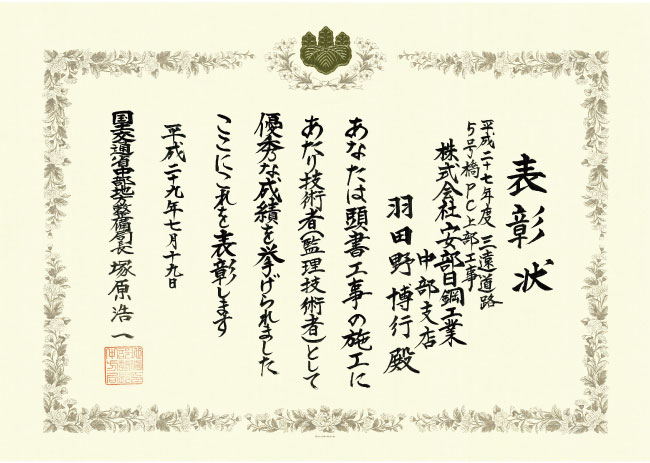 表彰状
平成二十七年度 三遠道路
5号橋PC上部工事
株式会社安部日鋼工業
中部支店
羽田野博行殿
あなたは頭書工事の施工に
あたり技術者(監理技術者)として
優秀な成績を挙げられました
ここにこれを表彰します
平成二十九年七月十九日
国土交通省中部地方整備局長 塚原浩一